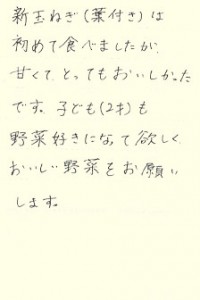 新玉ねぎ(葉付き)は
初めて食べましたが、
甘くて、とってもおいしかった
です。子ども(2才)も
野菜好きになって欲しく、
おいしい野菜をお願い
します。